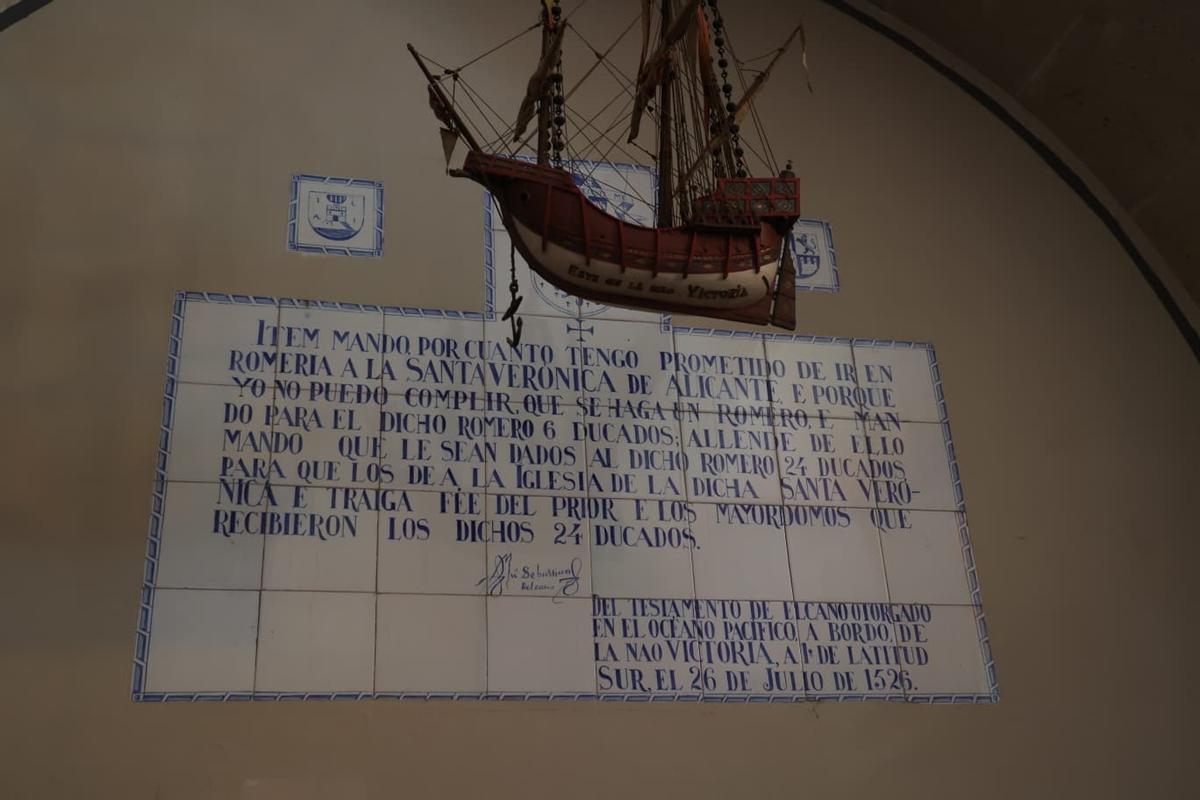 ESTA ES LA NAO VICTORIA
ITEM MANDO, POR CUANTO TENGO PROMETIDO DE IR EN
ROMERIA A LA SANTA VERONICA DE ALICANTE E PORQUE
YO NO PUEDO COMPLIR, QUE SE HAGA UN ROMERO, E MAN
DO PARA EL DICHO ROMERO 6 DUCADOS; ALLENDE DE ELLO
MANDO QUE LE SEAN DADOS AL DICHO ROMERO 24 DUCADOS
PARA QUE LOS DE A LA IGLESIA DE LA DICHA SANTA VERÓ-
NICA E TRAIGA FÉE DEL PRIOR E LOS MAYORDOMOS QUE
RECIBIERON LOS DICHOS 24 DUCADOS.
Sebastian
Delcano
DEL TESTAMENTO DE ELCANO OTORGADO
EN EL OCÉANO PACÍFICO, A BORDO, DE
LA NAO VICTORIA, A 1º DE LATITUD
SUR, EL 26 DE JULIO DE 1526.